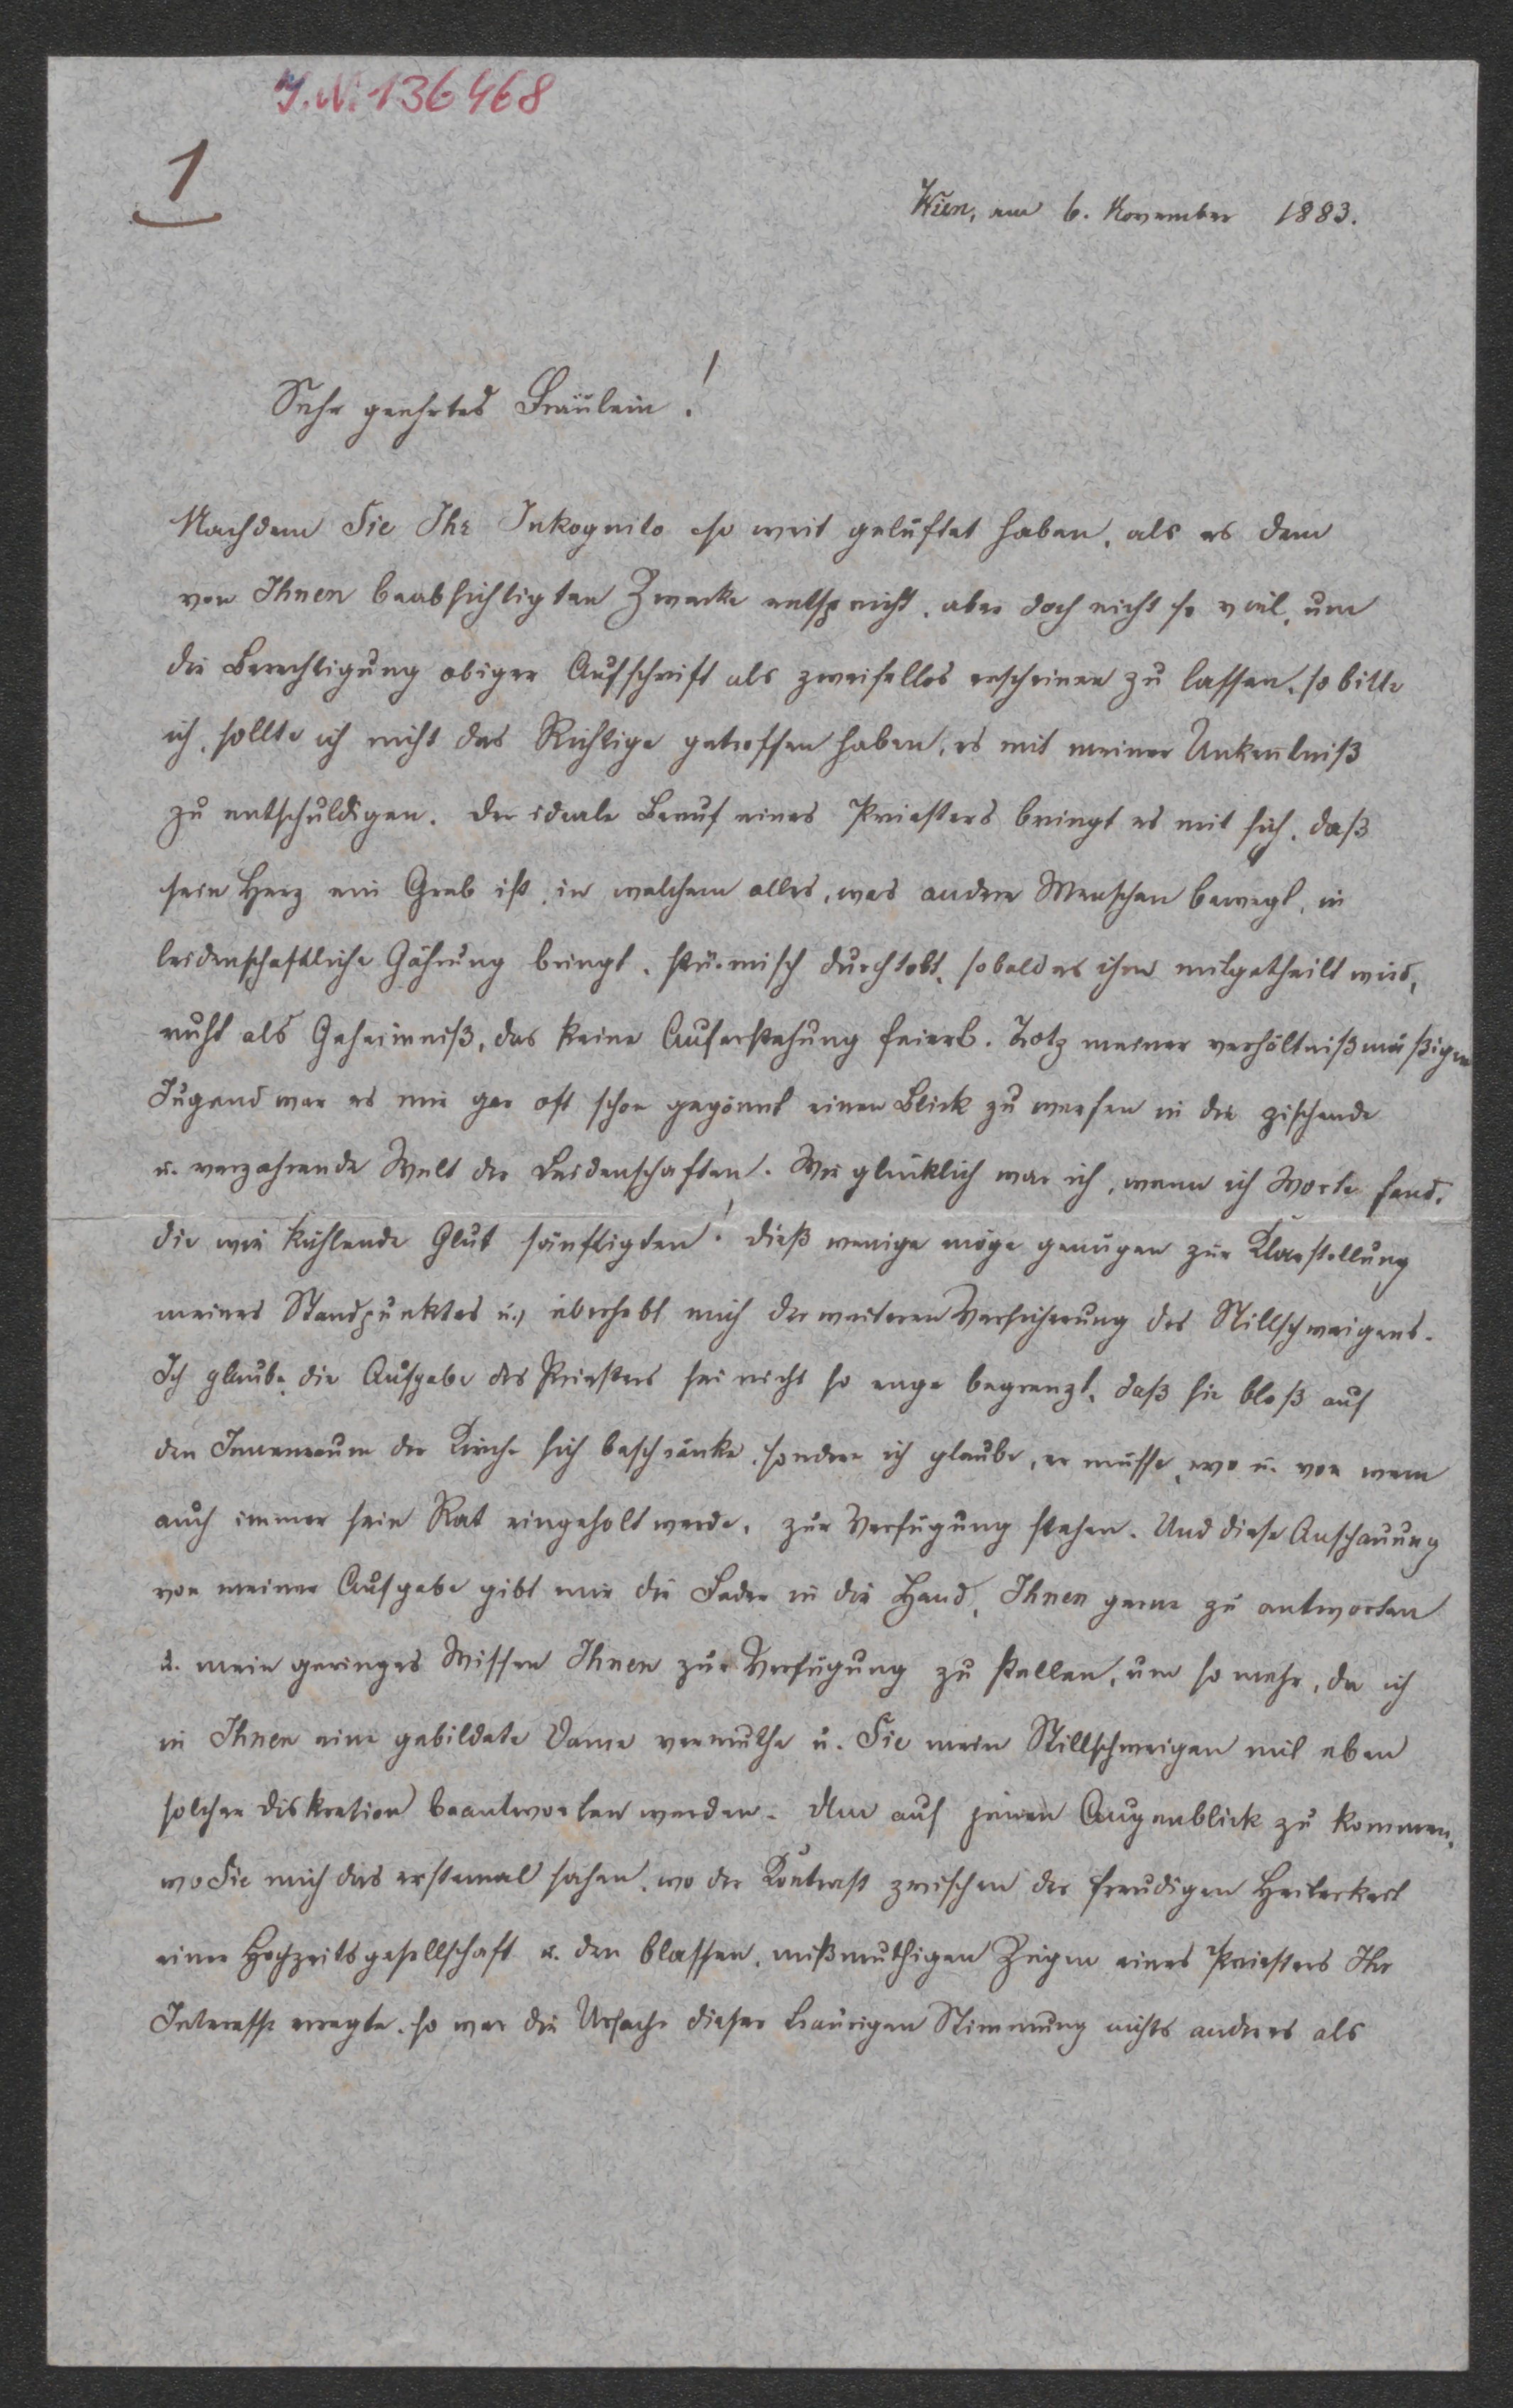 J.N. 136468
1
Wien, am 6. November 1883.
Sehr geehrtes Fräulein!
Nachdem Sie Ihr Inkognito so weit gelüftet haben, als es dem
von Ihnen beabsichtigten Zwecke entspricht, aber doch nicht so viel, um
die Berechtigung obiger Aufschrift als zweifellos erscheinen zu lassen, so bitte
ich, sollte ich nicht das Richtige getroffen haben, es mit meiner Unkentniß
zu entschuldigen. Der ideale Beruf eines Priesters bringt es mit sich, daß
sein Herz ein Grab ist, in welchem alles, was andere Menschen bewegt, in
leidenschaftliche Gährung bringt, stürmisch durchtobt, sobald es ihm mitgetheilt wird,
ruht als Geheimniß, das keine Auferstehung feiert. Trotz meiner verhältnißmäßigen
Jugend war es mir gar oft schon gegönnt einen Blick zu werfen in die zischende
u. verzehrende Welt der Leidenschaften. Wie glücklich war ich, wenn ich Worte fand,
die wie kühlende Glut sänftigten! Dieß wenige möge genügen zur Klarstellung
meines Standpunktes u. überhebt mich der weiteren Versicherung des Stillschweigens.
Ich glaube, die Aufgabe des Priesters sei nicht so enge begrenzt, daß sie bloß auf
den Innenraum der Kirche sich beschränke, sondern ich glaube, er müsse, wo u. von wem
auch immer sein Rat eingeholt werde, zur Verfügung stehen. Und diese Anschauung
von meiner Aufgabe gibt mir die Feder in die Hand, Ihnen gerne zu antworten
u. mein geringes Wissen Ihnen zur Verfügung zu stellen, um so mehr, da ich
in Ihnen eine gebildete Dame vermuthe u. Sie mein Stillschweigen mit eben
solcher Diskretion beantworten werden. Um auf jenen Augenblick zu kommen,
wo Sie mich das erstemal sahen, wo der Kontrast zwischen der freudigen Heiterkeit
einer Hochzeitsgesellschaft u. den blassen, mißmuthigen Zügen eines Priesters Ihr
Interesse erregte, so war die Ursache dieser traurigen Stimmung nichts anderes als